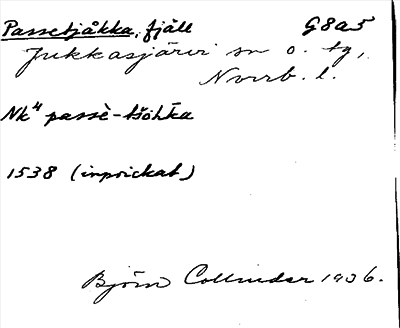 Passetjåkka, fjäll G8a5
Jukkasjärvi sn o. tg,
Norrb. l.
Nk⁴ passè-tšohka
1538 (inprickat)
Björn Collinder 1936.